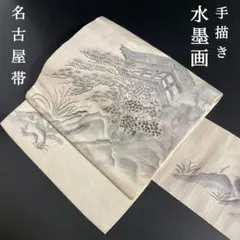 手描き
水墨画
名古屋帯